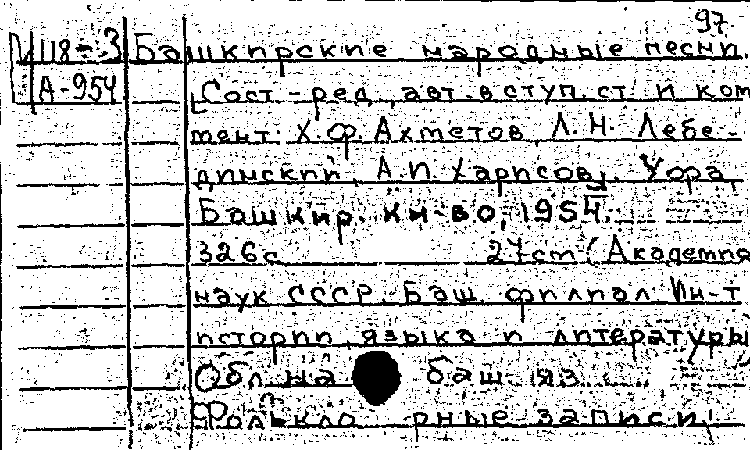 97
М18-3 Башкирские народные песни.
А-954 [Сост.-ред., авт. вступ. ст. и ком
мент. Х.Ф. Ахметов, Л.Н. Лебе-
динский, А.И. Харисов]. Уфа,
Башкир. кн-во, 1954.
326 с 27 cm (Академия
наук СССР. Баш. филиал Ин-т
истории, языка и литературы
Обл. на баш. яз.
Фольклорные записи!